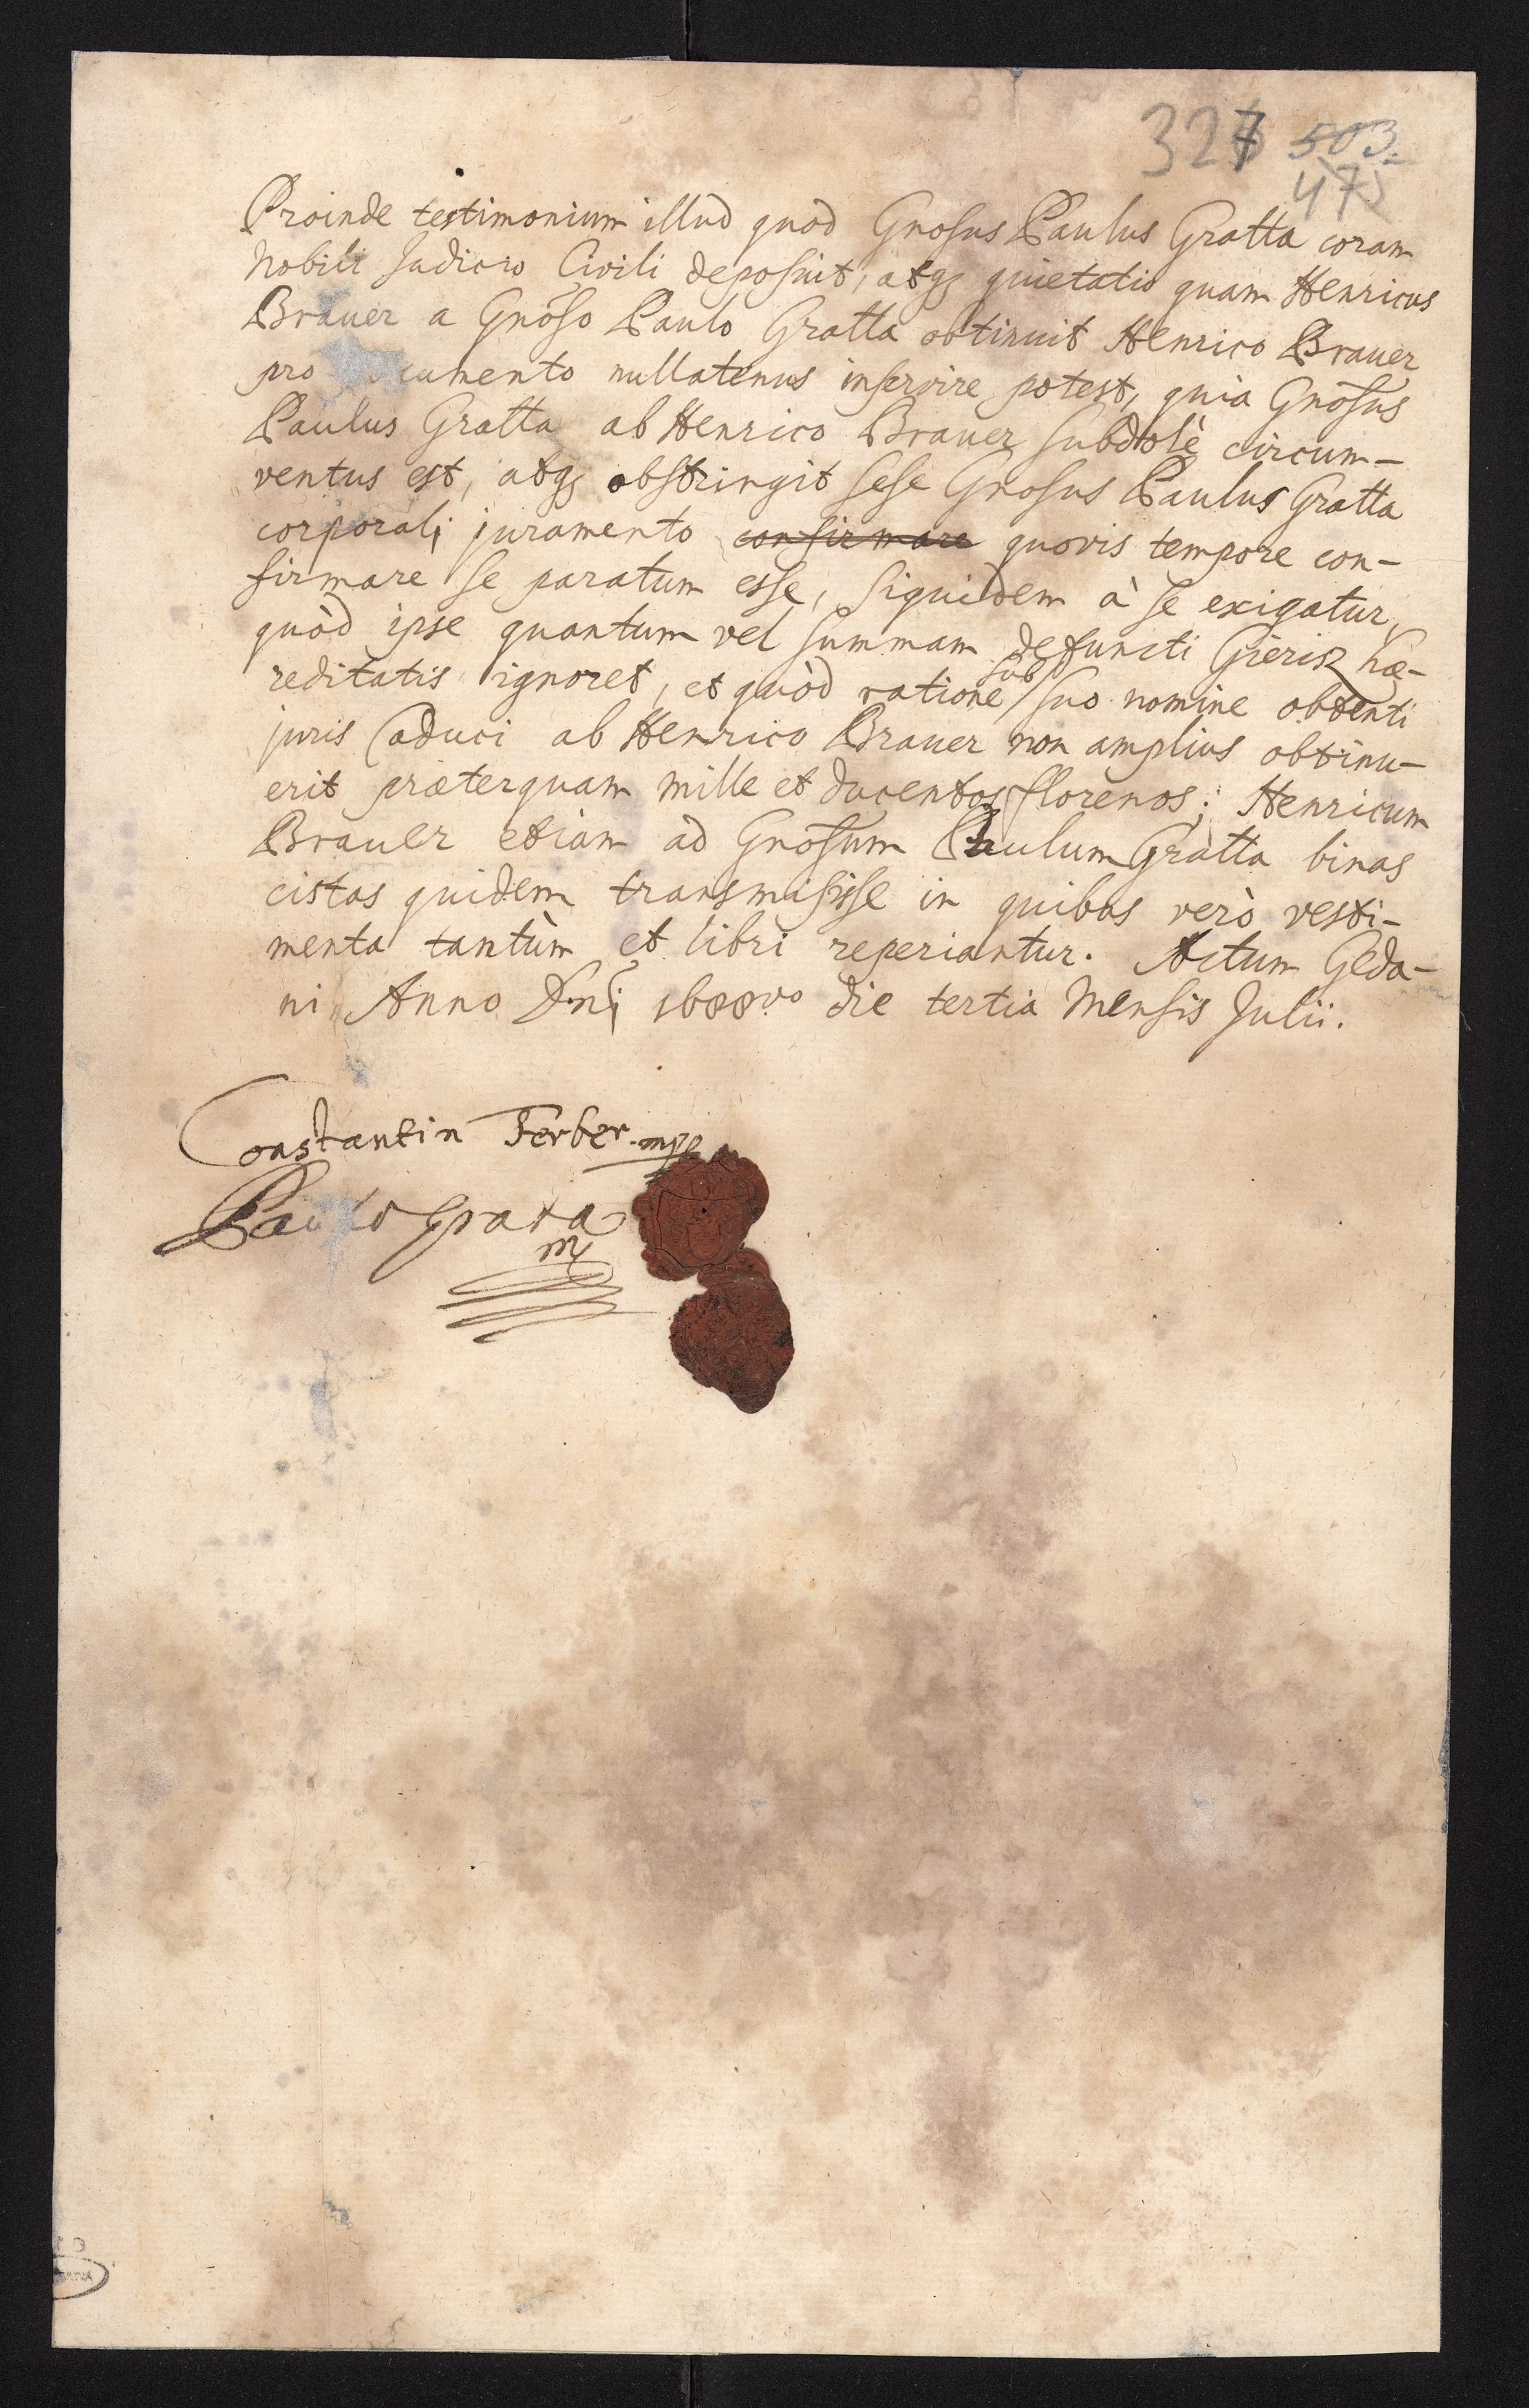 327 503.
47
Proinde testimonium illud quod Gnosus Paulus Gratta coram
Nobili Judicio Civili deposuit, atq; quietatio quam Henricus
Brauer a Gnōso Paulo Gratta obtinuit Henrico Brauer
pro cumento nullatenus inservire potest, quia Gnōsus
Paulus Gratta ab Henrico Brauer subdolè circum-
ventus est, atq; obstringit sese Gnosus Paulus Gratta
corporali juramento confirmare quovis tempore con-
firmare se paratum esse, siquidem à se exigatur,
quòd ipse quantum vel summam defuncti Gierisz hæ-
reditatis ignoret, et quòd ratione sub suo nomine obtenti
juris caduci ab Henrico Brauer non amplius obtinu-
erit præterquam mille et ducentos florenos; Henricum
Brauer etiam ad Gnōsum Paulum Gratta binas
cistas quidem transmisisse in quibus verò vesti-
menta tantùm et libri reperiantur. Actum Geda-
ni Anno Dni die tertia Mensis Julii.
Constantin Ferber mpp
Paulo Grata
mp